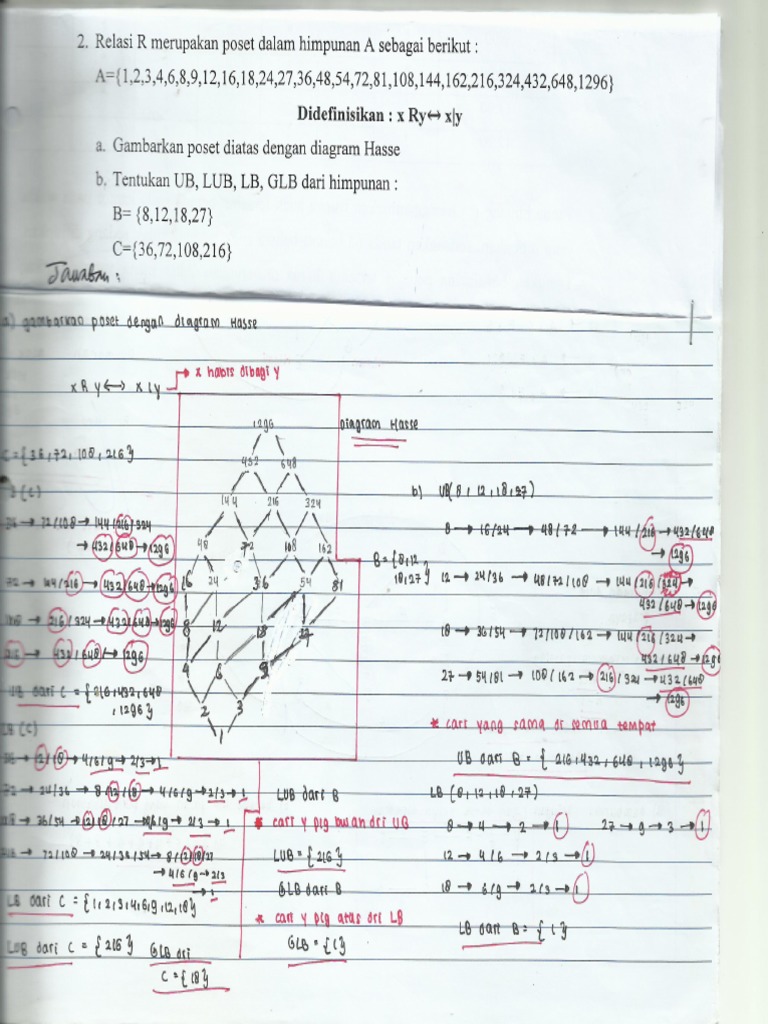 2. Relasi R merupakan poset dalam himpunan A sebagai berikut :
A={1,2,3,4,6,8,9,12,16,18,24,27,36,48,54,72,81,108,144,162,216,324,432,648,1296}
Didefinisikan : x Ry↔ x|y
a. Gambarkan poset diatas dengan diagram Hasse
b. Tentukan UB, LUB, LB, GLB dari himpunan :
B= {8,12,18,27}
C={36,72,108,216}
Jawaban :
a) gambarkan poset dengan diagram Hasse
x R y ↔ x | y → x habis dibagi y
Diagram Hasse
1296
432 648
144 216 324
48 72 108 162
16 24 36 54 81
8 12 18 27
4 6 9
2 3
1
C = {36, 72, 108, 216}
→ 72/108 → 144/216/324
→ 432/648 → 1296
72 → 144/216 → 432/648 → 1296
→ 216/324 → 432/648 → 1296
→ 432/648 → 1296
UB dari C = {216, 432, 648
, 1296}
LB (C)
→ 4/6/9 → 2/3 → 1
72 → 24/36 → 8/12/18 → 4/6/9 → 2/3 → 1
→ 36/54 → 12/18/27 → 4/6/9 → 2/3 → 1
72/108 → 24/36/54 → 8/12/18/27
→ 4/6/9 → 2/3
→ 1
LB dari C = {1, 2, 3, 4, 6, 9, 12, 18}
LUB dari C = {216}
GLB dri
C = {18}
b) UB (8, 12, 18, 27)
B = {8, 12
18, 27}
8 → 16/24 → 48/72 → 144/216 → 432/648
→ 1296
12 → 24/36 → 48/72/108 → 144/216/324
432/648 → 1296
18 → 36/54 → 72/108/162 → 144/216/324 →
432/648 → 1296
27 → 54/81 → 108/162 → 216/324 → 432/648
→ 1296
* cari yang sama di semua tempat
UB dari B = {216, 432, 648, 1296}
LB (8, 12, 18, 27)
8 → 4 → 2 → 1
27 → 9 → 3 → 1
12 → 4/6 → 2/3 → 1
18 → 6/9 → 2/3 → 1
LB dari B = {1}
LUB dari B
* cari y plg bwah dri UB
LUB = {216}
GLB dari B
* cari y plg atas dri LB
GLB = {1}